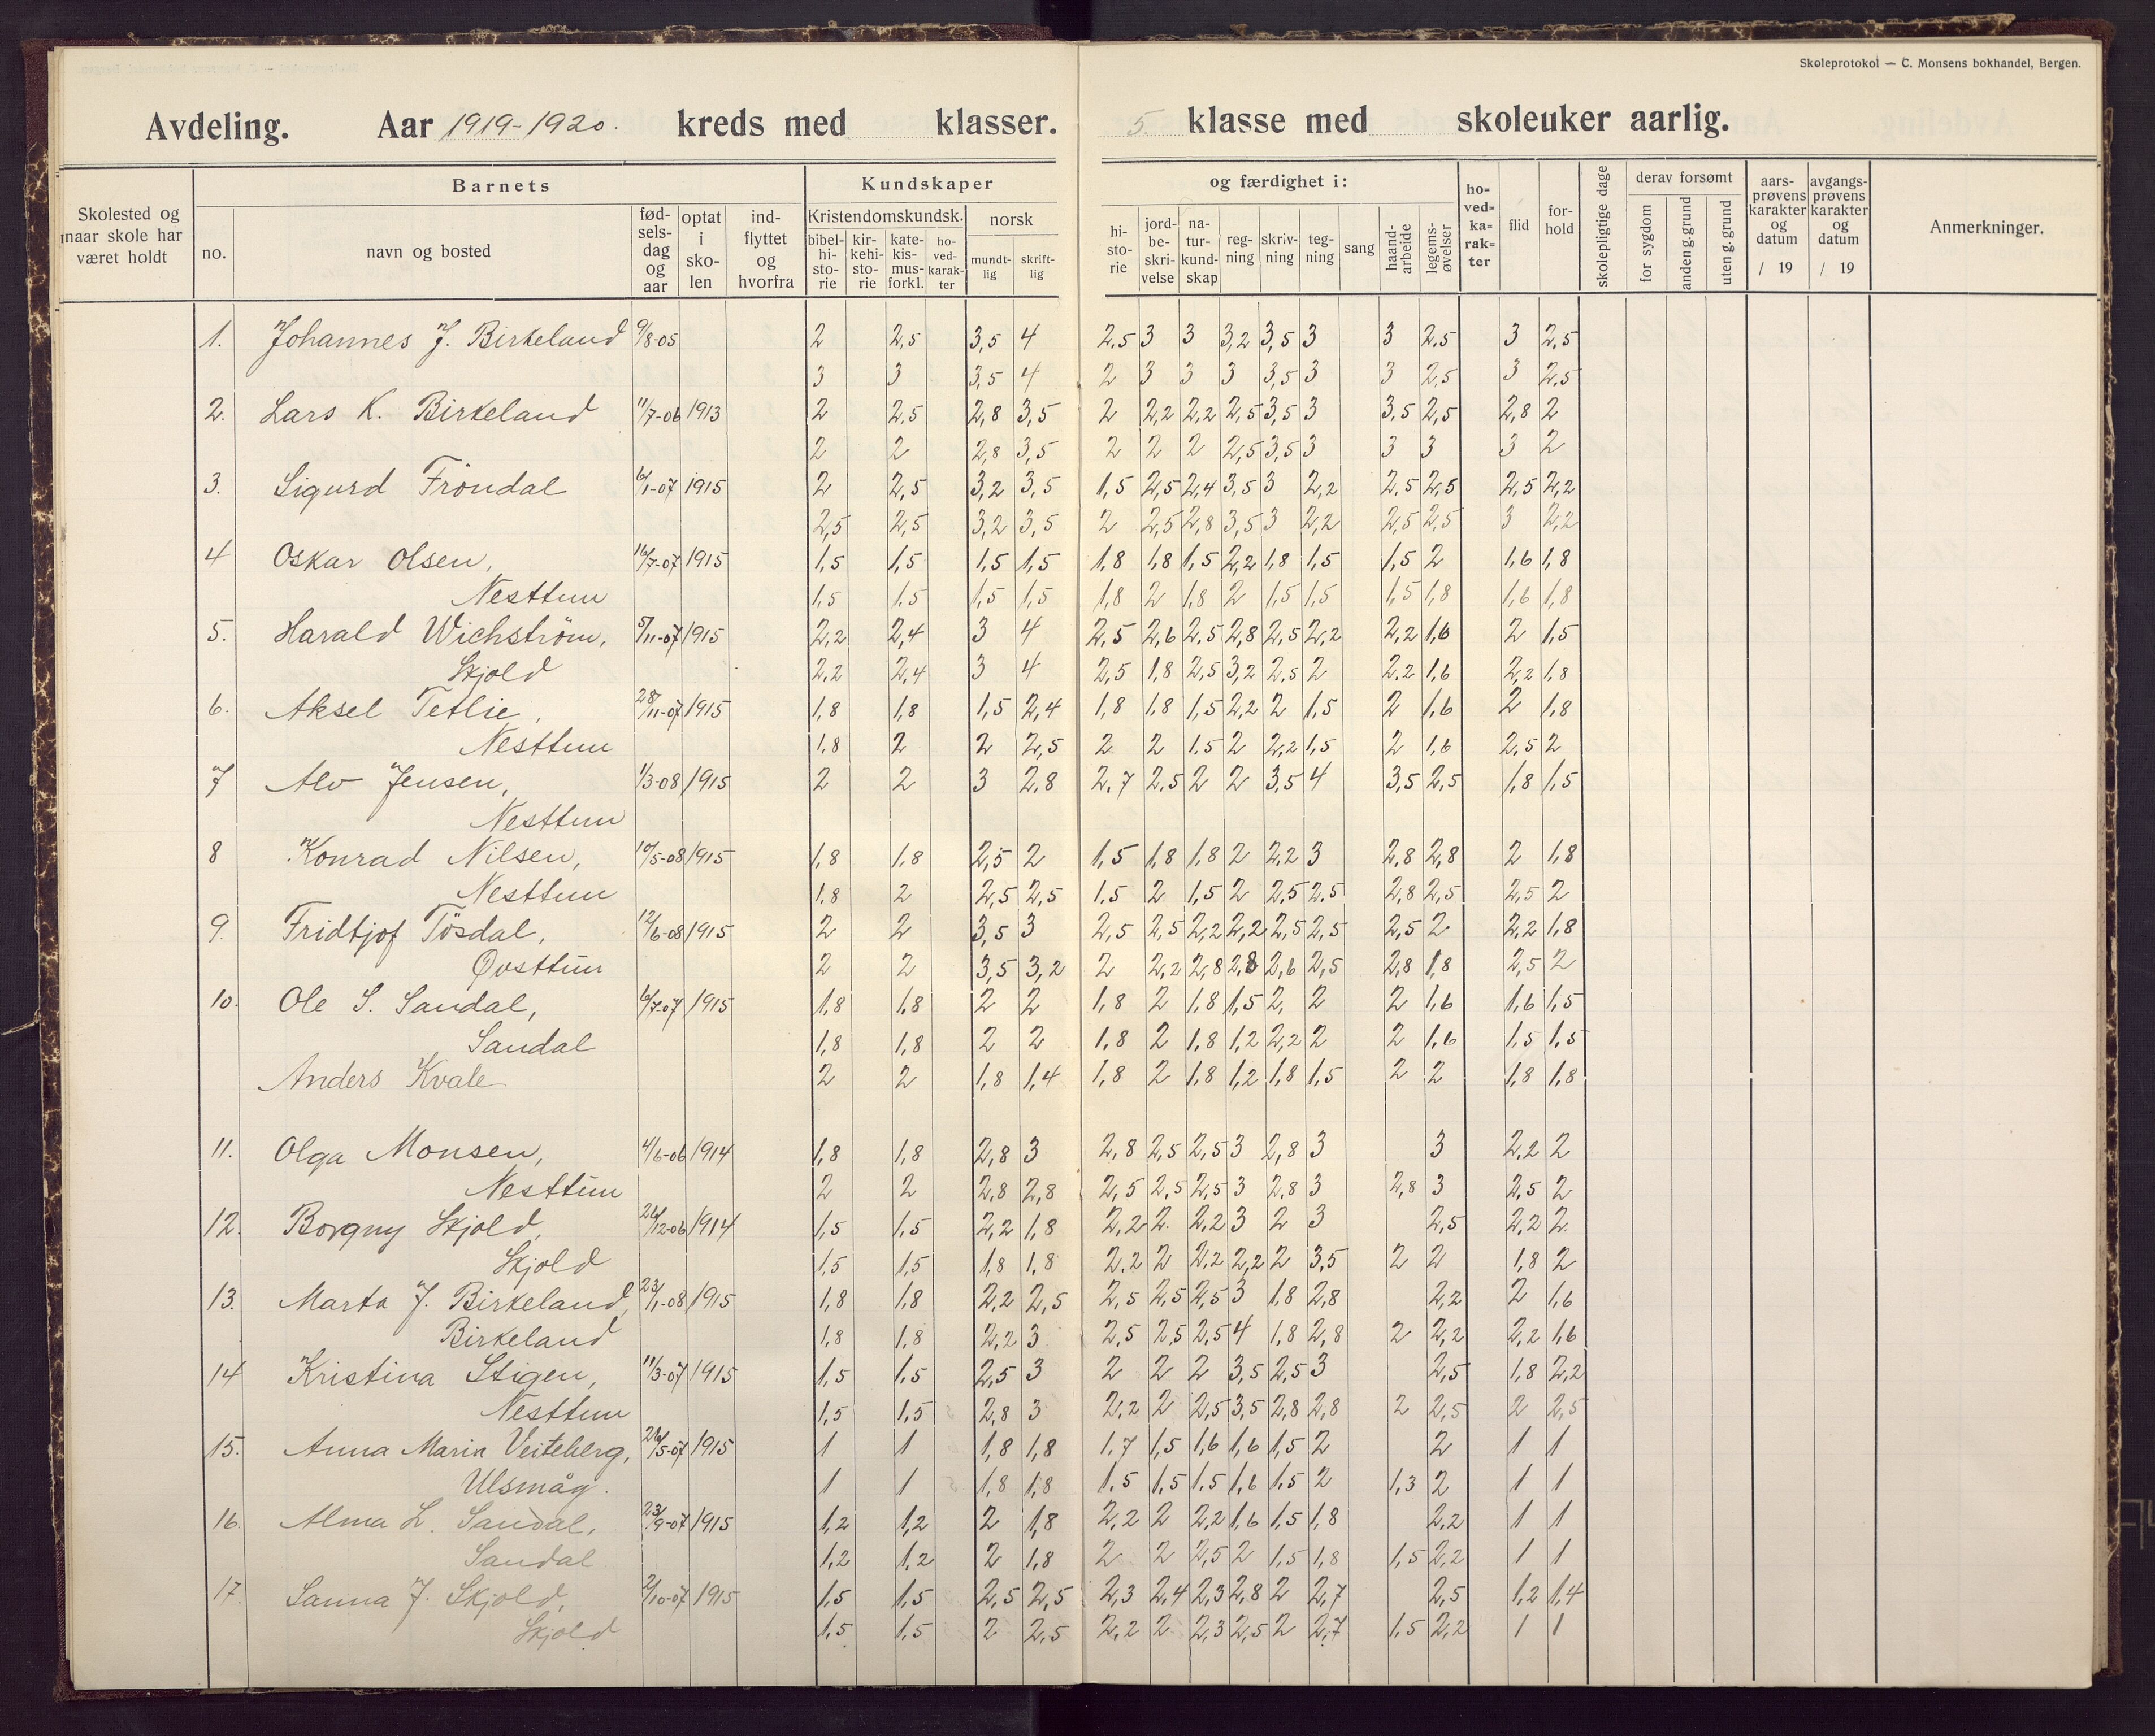 Skoleprotokol — C. Monsens bokhandel, Bergen.
Avdeling. Aar 1919-1920. kreds med klasser. 5 klasse med skoleuker aarlig.
Skolested og naar skole har været holdt
Barnets
no.
navn og bosted
fød-sels-dag og aar
optat i sko-len
ind-flyttet og hvorfra
Kundskaper og færdighet i:
Kristendomskundsk.
bibel-hi-sto-rie
kir-kehi-sto-rie
kate-kis-mus-forkl.
ho-ved-karak-ter
norsk
mundt-lig
skrift-lig
hi-sto-rie
jord-be-skri-velse
na-tur-kund-skap
reg-ning
skriv-ning
teg-ning
sang
haand-arbeide
legems-øvelser
ho-ved-ka-rak-ter
flid
for-hold
skolepligtige dage
derav forsømt
for sygdom
anden g. grund
uten g. grund
aars-prøvens karakter og datum / 19
avgangs-prøvens karakter og datum / 19
Anmerkninger.
1. Johannes J. Birkeland 9/8-05 2 2,5 3,5 4 2,5 3 3 3,2 3,5 3 3 2,5 3 2,5
3 3 3,5 4 2 3 3 3 3,5 3 3 2,5 3 2,5
2. Lars K. Birkeland 11/7-06 1913 2 2,5 2,8 3,5 2 2,2 2,2 2,5 3,5 3 3,5 2,5 2,8 2
2 2 2,8 3,5 2 2 2 2,5 3,5 3 3 3 3 2
3. Sigurd Tröndal 6/1-07 1915 2 2,5 3,2 3,5 1,5 2,5 2,4 3,5 3 2,2 2,5 2,5 2,5 2,2
2,5 2,5 3,2 3,5 2 2,5 2,8 3,5 3 2,2 2,5 2,5 3 2,2
4 Oskar Olsen, 16/7-07 1915 1,5 1,5 1,5 1,5 1,8 1,8 1,5 2,2 1,8 1,5 1,5 2 1,6 1,8
Nesttun 1,5 1,5 1,5 1,5 1,8 2 1,8 2 1,5 1,5 1,5 1,8 1,6 1,8
5. Harald Wichström, 5/11-07 1915 2,2 2,4 3 4 2,5 2,6 2,5 2,8 2,5 2,2 2,2 1,6 2 1,5
Skjold 2,2 2,4 3 4 2,5 1,8 2,5 3,2 2,5 2 2,2 1,6 2,2 1,8
6. Aksel Tetlie, 28/11-07 1915 1,8 1,8 1,5 2,4 1,8 1,8 1,5 2,2 2 1,5 2 1,6 2 1,8
Nesttun 1,8 2 2 2,5 2 2 1,5 2 2,2 1,5 2 1,6 2,5 2
7 Alv Jensen, 1/3-08 1915 2 2 3 2,8 2,7 2,5 2 2 3,5 4 3,5 2,5 1,8 1,5
Nesttun
8 Konrad Nilsen, 10/5-08 1915 1,8 1,8 2,5 2 1,5 1,8 1,8 2 2,2 3 2,8 2,8 2 1,8
Nesttun 1,8 2 2,5 2,5 1,5 2 1,5 2 2,5 2,5 2,8 2,5 2,5 2
9. Fridtjof Tösdal, 12/6-08 1915 2 2 3,5 3 2,5 2,5 2,2 2,2 2,5 2,5 2,5 2 2,2 1,8
Øvsttun 2 2 3,5 3,2 2 2,2 2,8 2,8 2,6 2,5 2,8 1,8 2,5 2
10. Ole S. Sandal, 6/7-07 1915 1,8 1,8 2 2 1,8 2 1,8 1,5 2, 2 2 1,6 1,6 1,5
Sandal 1,8 1,8 2 2 1,8 2 1,8 1,2 2,2 2 2 1,6 1,5 1,5
Anders Kvale 2 2 1,8 1,4 1,8 2 1,8 1,2 1,8 1,5 2 2 1,8 1,8
11. Olga Monsen, 4/6-06 1914 1,8 1,8 2,8 3 2,8 2,5 2,5 3 2,8 3 3 2,2 2
Nesttun 2 2 2,8 2,8 2,5 2,5 2,5 3 2,8 3 2,8 3 2,5 2
12. Borgny Skjold, 26/12-06 1914 1,5 1,5 2,2 1,8 2,2 2. 2,2 3 2 3 2,5 2,2 2.
Skjold 1,5 1,5 1,8 1,8 2,2 2 2,2 2,2 2 3,5 2 2 1,8 2
13. Marta J. Birkeland, 23/1-08 1915 1,8 1,8 2,2 2,5 2,5 2,5 2,5 3 1,8 2,8 2,2 2 1,6
Birkeland 1,8 1,8 2,2 3 2,5 2,5 2,5 4 1,8 2,8 2 2,2 2,2 1,6
14 Kristina Stigen, 11/3-07 1915 1,5 1,5 2,5 3 2 2 2 3,5 2,5 3 2,5 1,8 2,2
Nesttun 1,5 1,5 2,8 3 2,2 2 2,5 3,5 2,8 2,8 2 2,5 2 2,5
15. Anna Maria Veiteberg, 26/5-07 1915 1 1 1,8 1,8 1,7 1,5 1,6 1,6 1,5 2 2 1 1
Ulsmåg. 1 1 1,8 1,8 1,5 1,5 1,5 1,6 1,5 2 1,3 2 1 1
16. Alma L. Sandal, 23/9-07 1915 1,2 1,2 2 1,8 2,2 2 2,2 1,6 1,5 1,8 2,2 1 1
Sandal 1,2 1,2 2 1,8 2 2 2,5 2 1,5 1,8 1,5 2,2 1 1
17. Sanna J. Skjold, 2/10-07 1915 1,5 1,5 2,5 2,5 2,3 2,4 2,3 2,8 2 2,7 2,5 1,2 1,4
Skjold 1,5 1,5 2 2,5 2,2 2 2,3 2,5 2 2,7 1,5 2,2 1 1